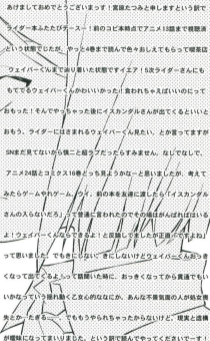 あけましておめでとうございまっす！宮原たつみと申しますという訳で
ライダー本ふたたびデース…！前のコピ本時点でアニメ13話まで視聴済
という状態でしたが、やっと4巻まで読んで色々おしえてもらって喫茶店
ウェイバーくんまであり着いた状態ですイエア！5次ライダーさんにも
もてでるウェイバーくんかわいいかった！食われちゃえばいいのにって
おもった！そんでやっちゃった後にイスカンダルさんが出てくるといいと
おもう。ライダーにはさまれるウェイバーくん見たい、とか言ってますが
SNまだ見てないから慎二と超ラブだったらすみません。なしでなしで、
アニメ24話とコミックス16巻とっちも見ようかなーと思いましたが、考えて
みたらゲームやれゲーム。ウイ。前の本を友達に渡したら「イスカンダル
さんの入らないだろ」って普通に言われたのでその場ががんばればいける
よ！ウェイバーくんならできるよ！と反論してましたが正直ですよね」
って思いました。でもきにしない。きにしないけどウェイバーくんおっき
くなって出てくるよって話聞いた時に、おっきくなってから貫通でもい
いかなっていう揺れ動く乙女心的ななにか、あんな不景気面の人が処女喪
失とかったぎる……。でももうやられちゃったからないけど。現実と虚構
が曖昧になってまいりました。という訳で読んでやってくださいでーす！